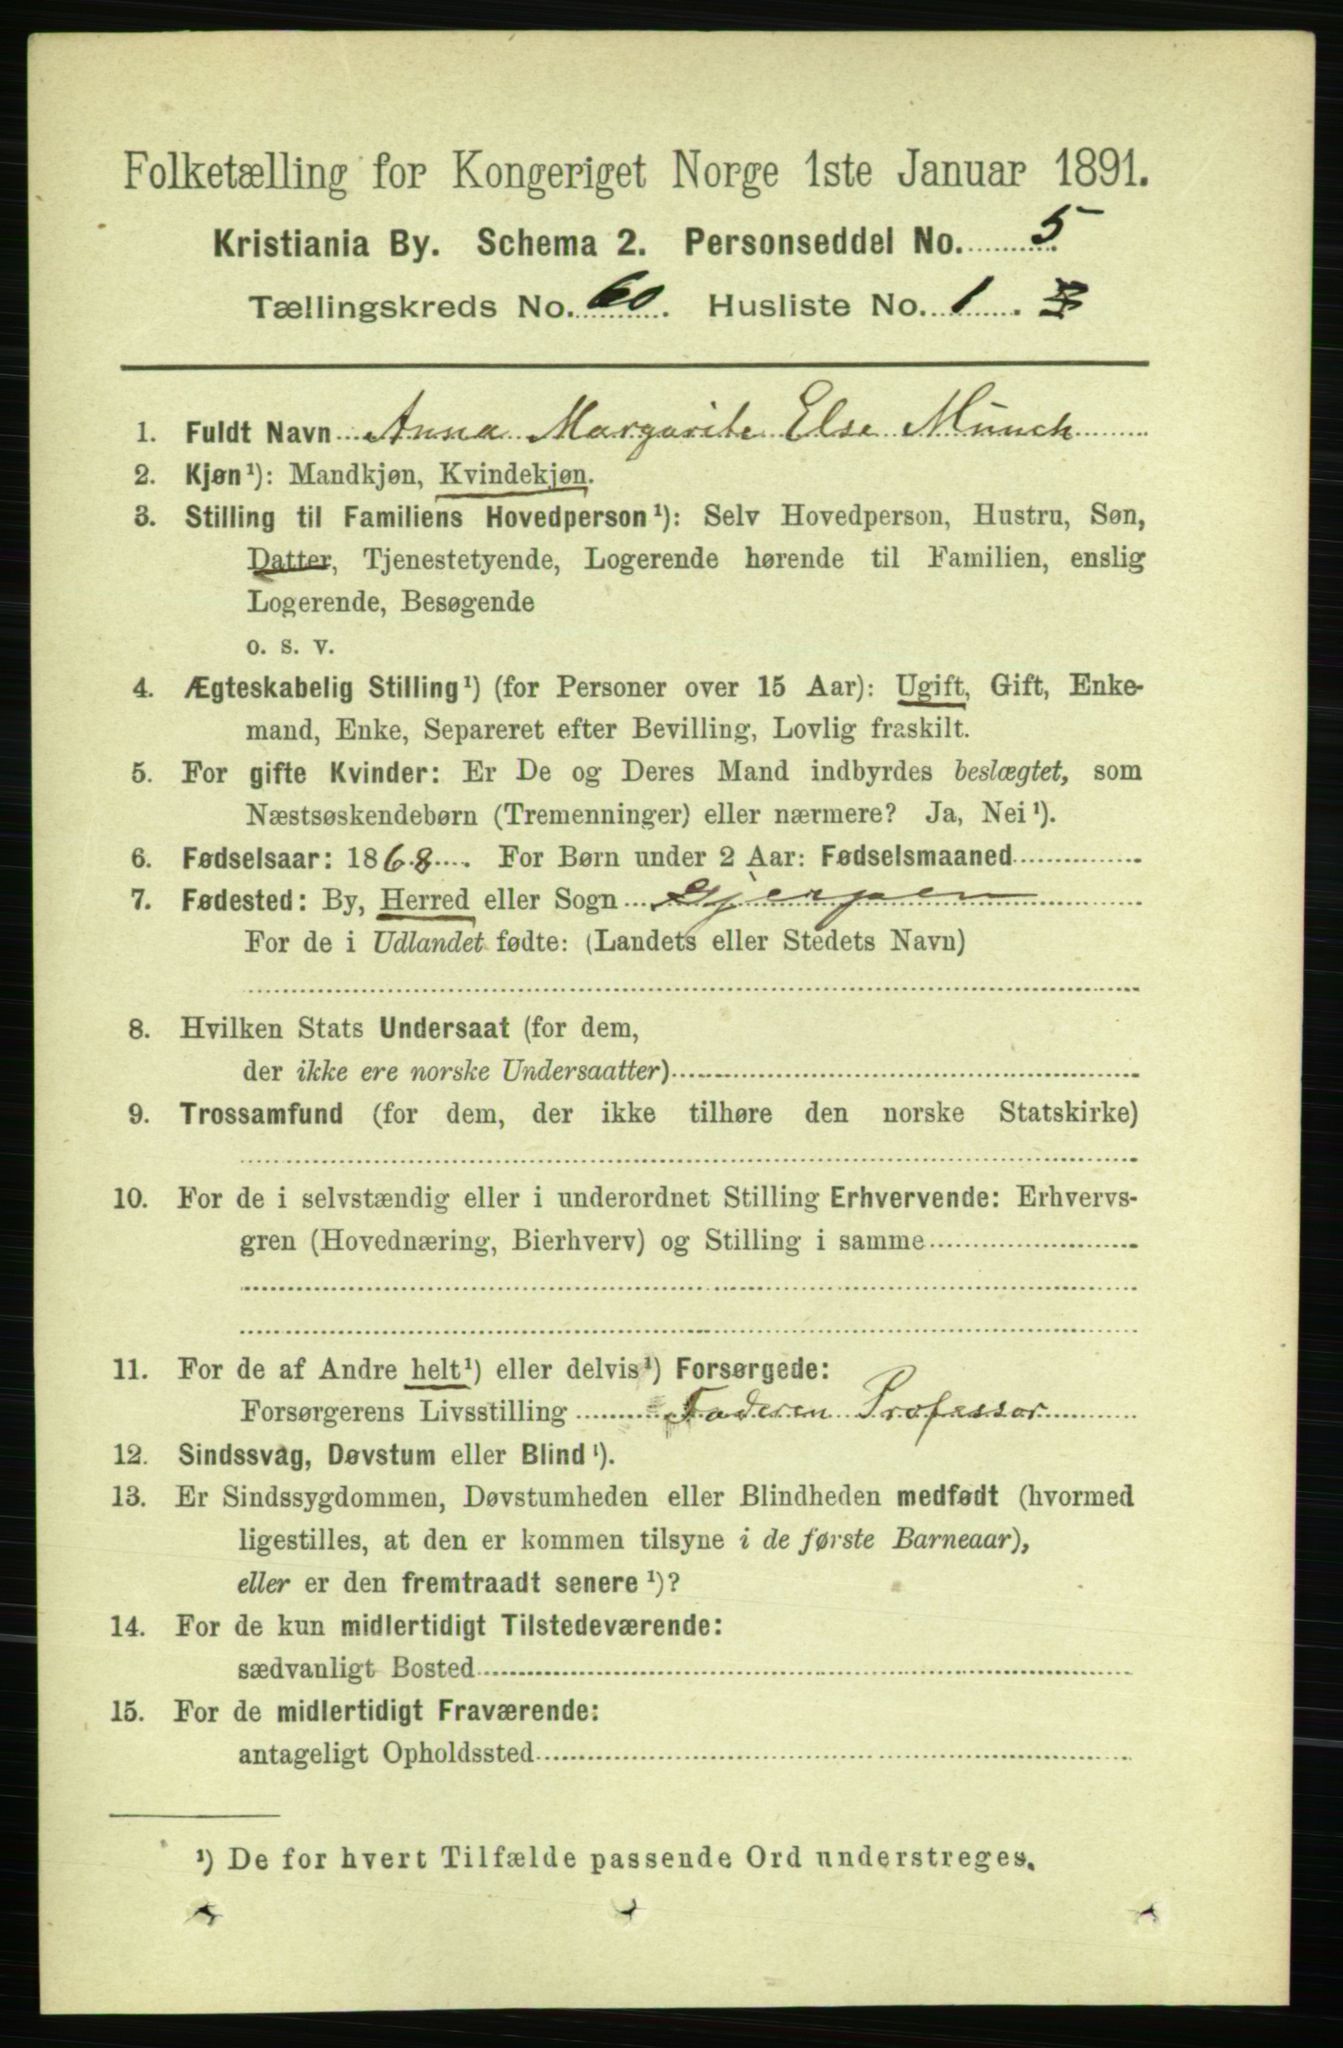 Folketælling for Kongeriget Norge 1ste Januar 1891.
Kristiania By. Schema 2. Personseddel No. 5
Tællingskreds No. 60. Husliste No. 1.
1. Fuldt Navn Anna Margarite Else Münch
2. Kjøn¹): Mandkjøn, Kvindekjøn.
3. Stilling til Familiens Hovedperson¹): Selv Hovedperson, Hustru, Søn,
Datter, Tjenestetyende, Logerende hørende til Familien, enslig
Logerende, Besøgende
o. s. v.
4. Ægteskabelig Stilling¹) (for Personer over 15 Aar): Ugift, Gift, Enke-
mand, Enke, Separeret efter Bevilling, Lovlig fraskilt.
5. For gifte Kvinder: Er De og Deres Mand indbyrdes beslægtet, som
Næstsøskendebørn (Tremenninger) eller nærmere? Ja, Nei¹).
6. Fødselsaar: 1868. For Børn under 2 Aar: Fødselsmaaned
7. Fødested: By, Herred eller Sogn Gjerpen
For de i Udlandet fødte: (Landets eller Stedets Navn)
8. Hvilken Stats Undersaat (for dem,
der ikke ere norske Undersaatter)
9. Trossamfund (for dem, der ikke tilhøre den norske Statskirke)
10. For de i selvstændig eller i underordnet Stilling Erhvervende: Erhvervs-
gren (Hovednæring, Bierhverv) og Stilling i samme
11. For de af Andre helt¹) eller delvis¹) Forsørgede:
Forsørgerens Livsstilling Faderen Professor
12. Sindssvag, Døvstum eller Blind¹).
13. Er Sindssygdommen, Døvstumheden eller Blindheden medfødt (hvormed
ligestilles, at den er kommen tilsyne i de første Barneaar),
eller er den fremtraadt senere¹)?
14. For de kun midlertidigt Tilstedeværende:
sædvanligt Bosted
15. For de midlertidigt Fraværende:
antageligt Opholdssted
¹) De for hvert Tilfælde passende Ord understreges.